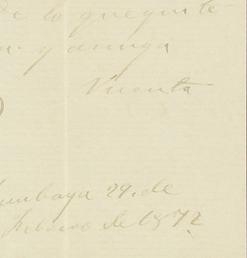 de lo que quite
y amiga
Vicenta
Cumbaya 29. de
febrero de 1872